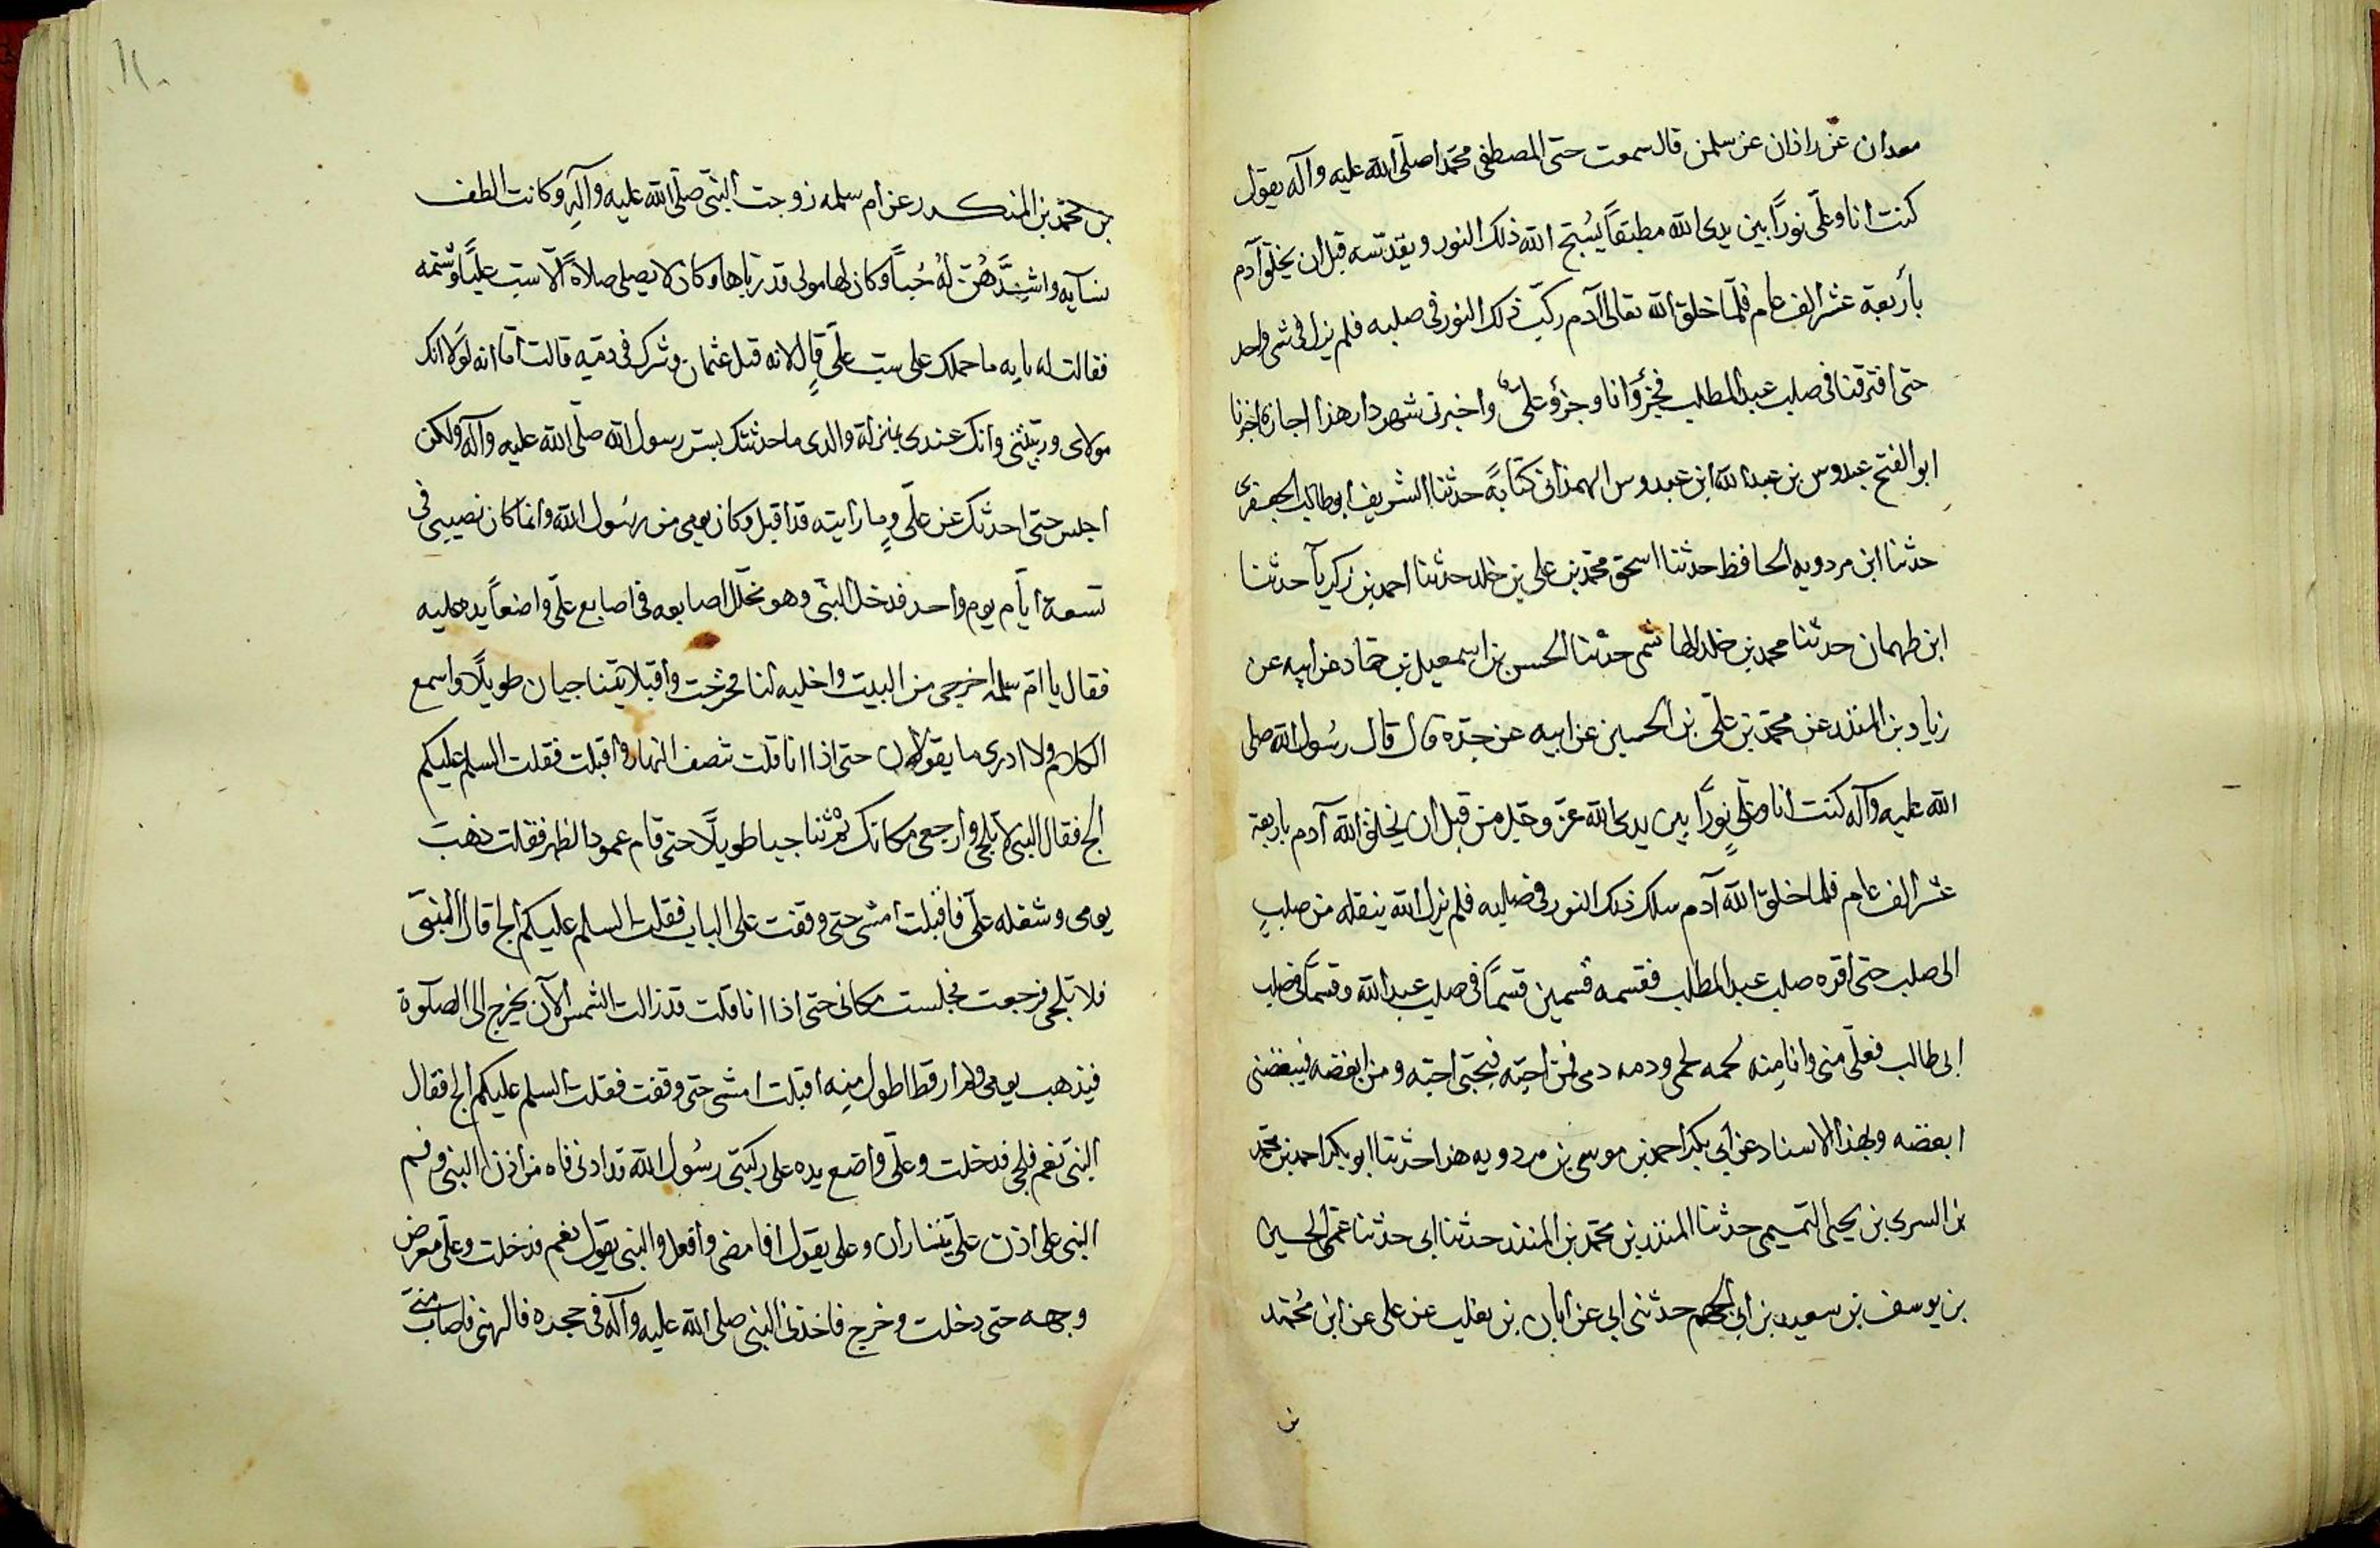 معدان عن زاذان عن سلمن قال سمعت حتى المصطفى محمدا صلى الله عليه وآله يقول
كنت انا وعلى نورا بين يدى الله مطبقا يسبح الله ذلك النور ويقدسه قبل ان يخلق آدم
بأربعة عشر الف عام فلما خلق الله تعالى آدم ركب ذلك النور فى صلبه فلم يزل فى شئ واحد
حتى افترقنا فى صلب عبد المطلب فجزؤ انا وجزؤ على واخبرنى شهردار هذا اجازة اخبرنا
ابو الفتح عبدوس بن عبد الله ابن عبدوس الهمذانى كتابة حدثنا الشريف ابو طالب الجعفرى
حدثنا ابن مردويه الحافظ حدثنا اسحق محمد بن على بن خلد حدثنا احمد بن زكريا حدثنا
ابن طهمان حدثنا محمد بن خلد الهاشمى حدثنا الحسن بن اسمعيل بن حماد عن ابيه عن
زياد بن المنذر عن محمد بن على بن الحسين عن ابيه عن جده قال قال رسول الله صلى
الله عليه وآله كنت انا وعلى نورا بين يدى الله عز وجل من قبل ان يخلق الله آدم باربعة
عشر الف عام فلما خلق الله آدم سلك ذلك النور فى صلبه فلم يزل الله ينقله من صلب
الى صلب حتى اقره صلب عبد المطلب فقسمه قسمين قسما فى صلب عبد الله وقسما فى صلب
ابى طالب فعلى منى وانا منه لحمه لحمى ودمه دمى فمن احبه فبحبى احبه ومن ابغضه فببغضى
ابغضه وبهذا الاسناد عن ابى بكر احمد بن موسى بن مردويه هذا حدثنا ابو بكر احمد بن محمد
بن السرى بن يحيى التميمى حدثنا المنذر بن محمد بن المنذر حدثنا ابى حدثنا عمى الحسين
بن يوسف بن سعيد بن ابى الجهم حدثنى ابى عن ابان بن تغلب عن على عن ابن محمد
بن
بن محمد بن المنكدر عن ام سلمه زوجت النبى صلى الله عليه وآله وكانت الطف
نسآيه واشدهن له حبا وكان لها مولى قد رباها وكان لا يصلى صلاة الا سب عليا وشتمه
فقالت له يا به ما حملك على سب على قال لانه قتل عثمان وشرك فى دمه قالت اما انه لولا انك
مولاى وربيتنى وانك عندى بمنزلة والدى ما حدثتك بسر رسول الله صلى الله عليه وآله ولكن
اجلس حتى احدثك عن على وما رايته قد اقبل وكان يومى من رسول الله وانما كان نصيبى فى
تسعة ايام يوم واحد فدخل النبى وهو تخلل اصابعه فى اصابع على واضعا يده عليه
فقال يا ام سلمه اخرجى من البيت واخليه لنا فخرجت واقبلا يتناجيان طويلا واسمع
الكلام ولا ادرى ما يقولان حتى اذا انا قلت نصف النهار واقبلت فقلت السلم عليكم
الج فقال النبى لا تلجى وارجعى مكانك ثم تناجيا طويلا حتى قام عمود الظهر فقلت ذهب
يومى وشغله على فاقبلت امشى حتى وقفت على الباب فقلت السلم عليكم الج قال النبى
فلا تلجى فرجعت فجلست مكانى حتى اذا انا قلت قد زالت الشمس الآن يخرج الى الصلوة
فيذهب يومى ولم ار قط اطول منه اقبلت امشى حتى وقفت فقلت السلم عليكم الج فقال
النبى نعم فلجى فدخلت وعلى واضع يده على ركبتى رسول الله قد ادنى فاه من اذن النبى وفم
النبى على اذن على يتساران وعلى يقول افامضى وافعل والنبى يقول نعم فدخلت وعلى معرض
وجهه حتى دخلت وخرج فاخذنى النبى صلى الله عليه وآله فى حجره فالزمنى فاصاب منى